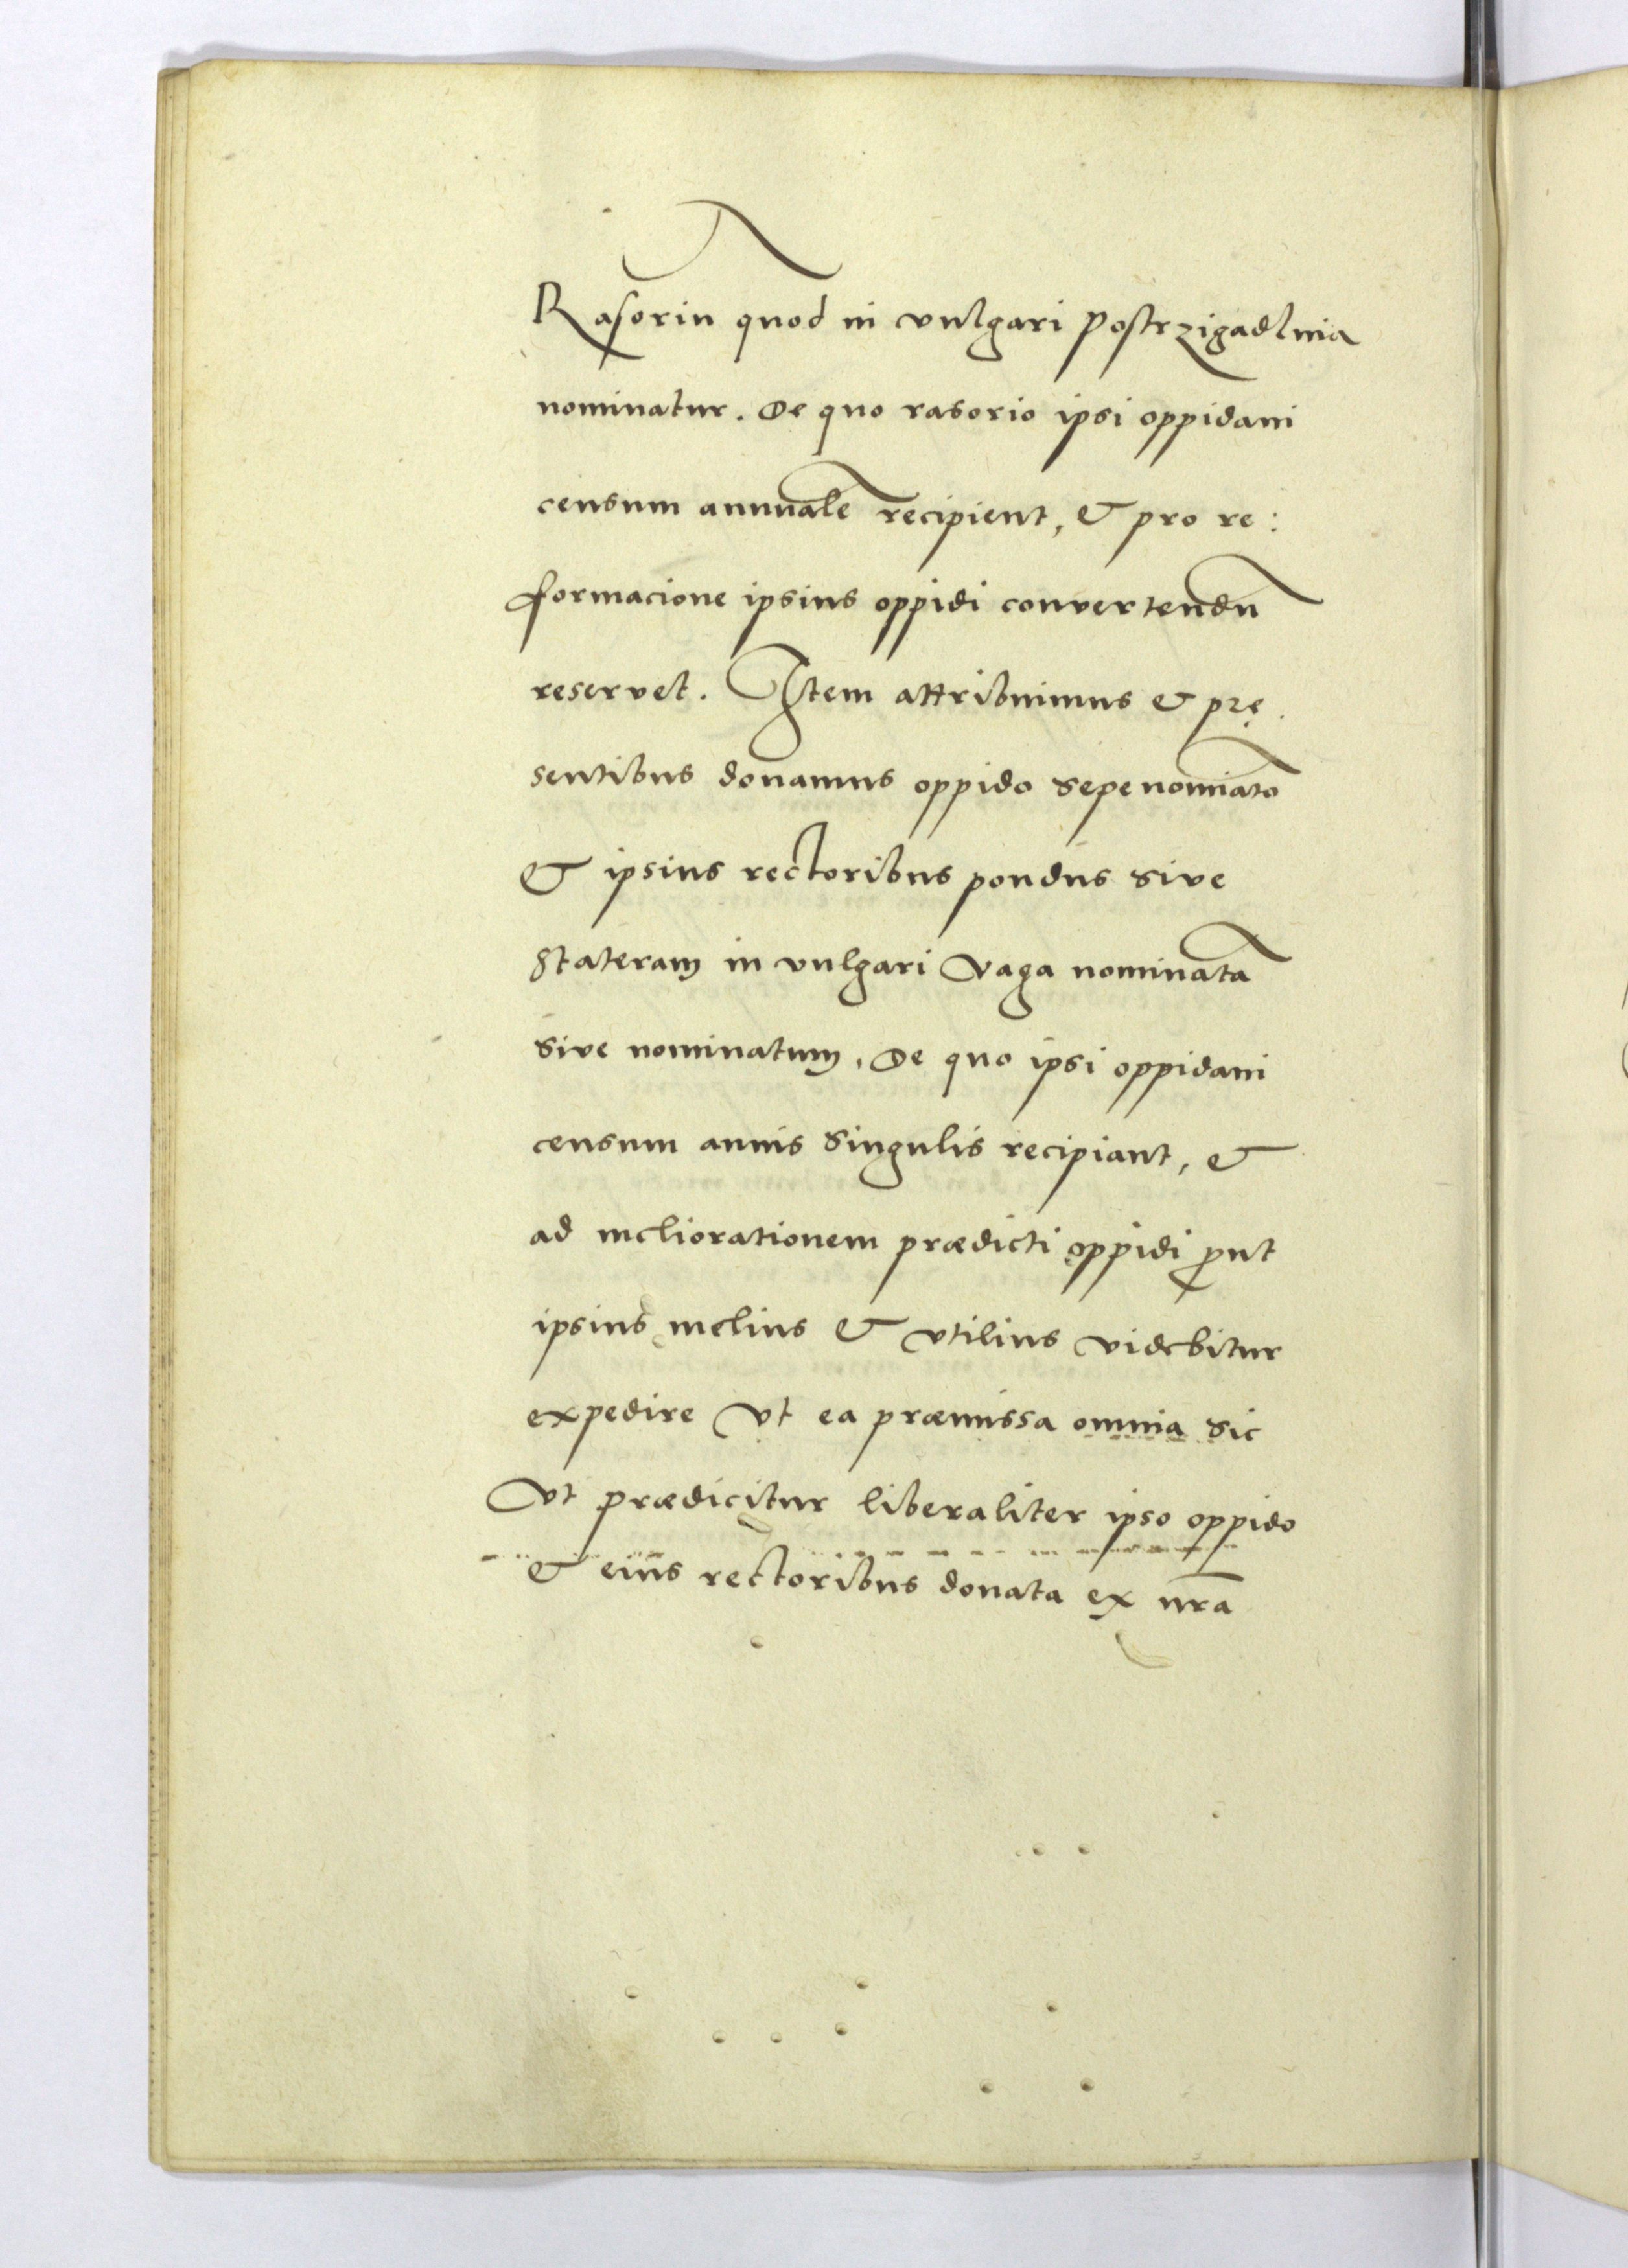 Rasoriu quod in vulgari Postrzigadlnia
nominatur. De quo rasorio ipsi oppidani
censum annuale recipient, & pro re:
formacione ipsius oppidi convertendu
reservet. Item attribuimus & prę
sentibus donamus oppido sepenomiato
& ipsius rectoribus pondus sive
stateram in vulgari Vaga nominata
sive nominatum, De quo ipsi oppidani
censum annis singulis recipiant, &
ad meliorationem prædicti oppidi ꝓut
ipsius melius & utilius videbitur
expedire Vt ea præmissa omnia sic
Vt prædicitur liberaliter ipso oppido
& eius rectoribus donata ex nra